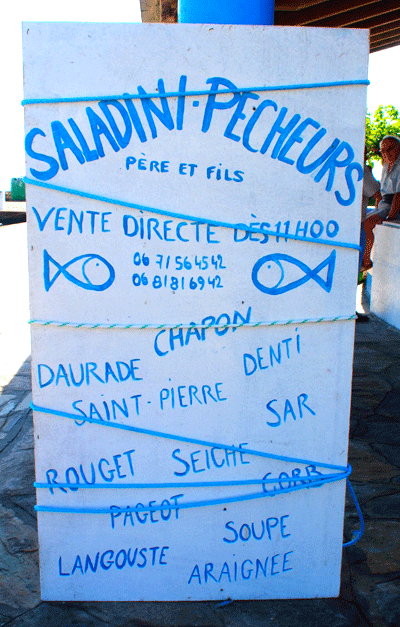 SALADINI-PECHEURS
PÈRE ET FILS
VENTE DIRECTE DÈS 11H00
06 71 56 45 42
06 81 81 69 42
CHAPON
DAURADE DENTI
SAINT-PIERRE SAR
ROUGET SEICHE CORB
PAGEOT
SOUPE
LANGOUSTE ARAIGNEE